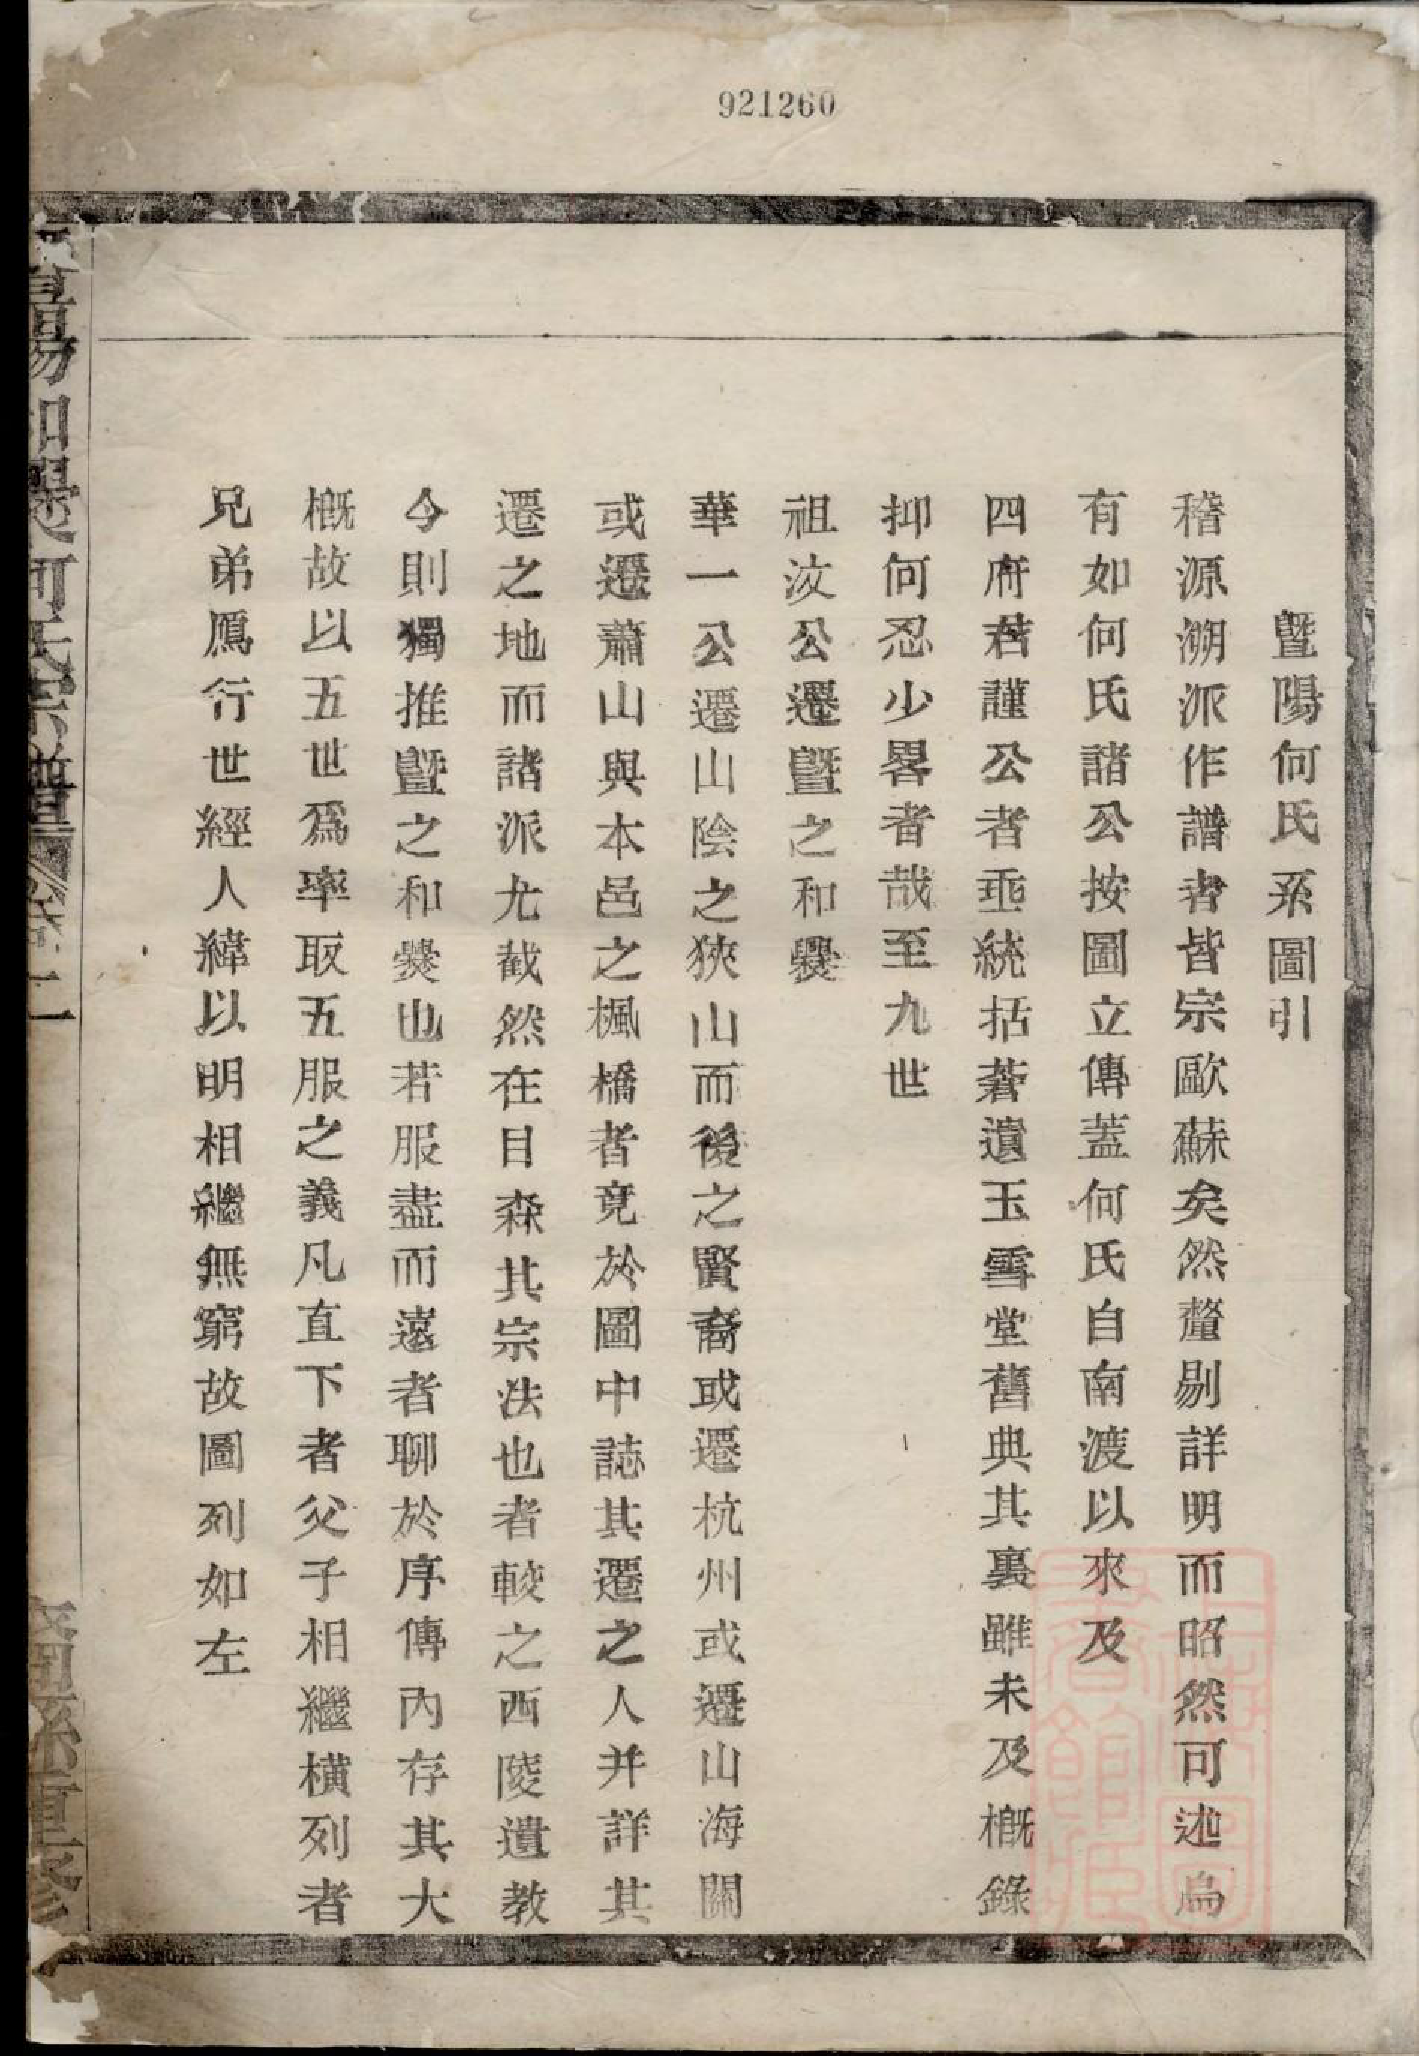 921260
暨陽何氏系圖引
稽源溯派作譜者皆宗歐蘇矣然釐剔詳明而昭然可述烏
有如何氏諸公按圖立傳蓋何氏自南渡以來及
四府君謹公者乖統括蒼遺玉雪堂舊典其裏雖未及概錄
抑何忍少畧者哉至九世
祖汶公遷暨之和爨
華一公遷山陰之狹山而後之賢裔或遷杭州或遷山海關
或遷蕭山與本邑之楓橋者竟於圖中誌其遷之人并詳其
遷之地而諸派尤截然在目森其宗法也者較之西陵遺教
今則獨推暨之和爨也若服盡而遠者聊於序傳內存其大
概故以五世爲率取五服之義凡直下者父子相繼橫列者
兄弟鴈行世經人緯以明相繼無窮故圖列如左
暨陽和爨何氏宗譜 卷二
上海圖書館藏